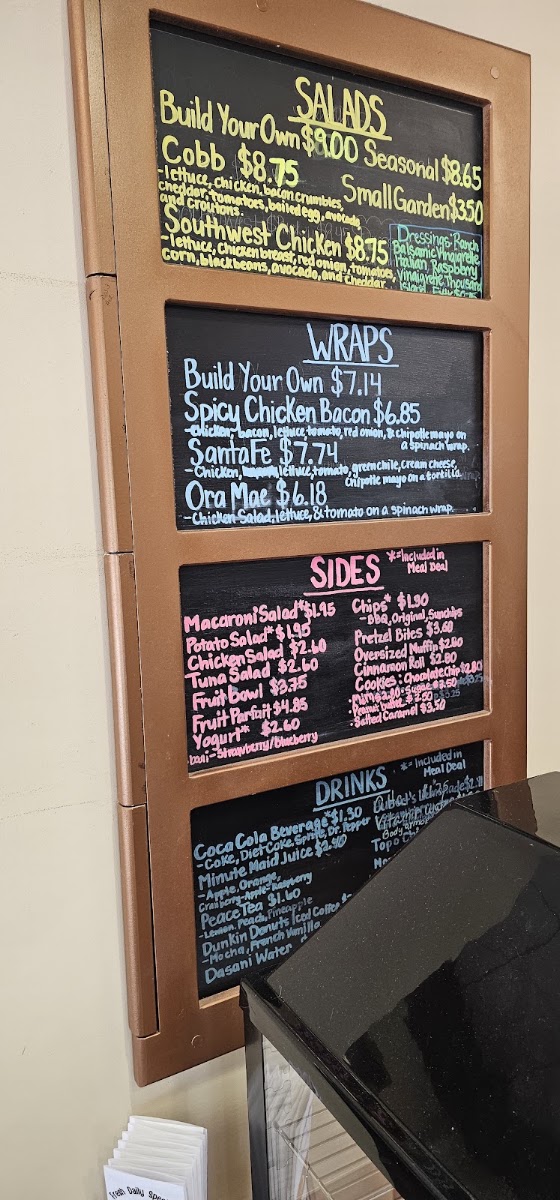 SALADS
Build Your Own $9.00 Seasonal $8.65
Cobb $8.75
-lettuce, chicken, bacon crumbles,
cheddar, tomatoes, boiled egg, avocado
and croutons.
Small Garden $3.50
Southwest Chicken $8.75
-lettuce, chicken breast, red onion, tomatoes,
corn, blackbeans, avocado, and cheddar
Dressings: Ranch
Balsamic Vinaigrette
Italian, Raspberry
Vinaigrette, Thousand
Island
WRAPS
Build Your Own $7.14
Spicy Chicken Bacon $6.85
-chicken, bacon, lettuce, tomato, red onion, & chipotle mayo on
a spinach wrap.
Santa Fe $7.74
-Chicken, lettuce, tomato, green chile, cream cheese,
chipotle mayo on a tortilla
Ora Mae $6.18
-Chicken Salad, lettuce, & tomato on a spinach wrap.
SIDES
*=Included in
Meal Deal
Macaroni Salad* $1.95
Potato Salad* $1.95
Chicken Salad $2.60
Tuna Salad $2.60
Fruit Bowl $3.75
Fruit Parfait $4.85
Yogurt* $2.60
-Strawberry/Blueberry
Chips* $1.90
-BBQ, Original, Sunchips
Pretzel Bites $3.60
Oversized Muffin $2.80
Cinnamon Roll $2.80
Cookies: Chocolate Chip $2.80
Peanut Butter $3.50
Salted Caramel $3.50
DRINKS
*=Included in
Meal Deal
Coca Cola Beverage* $1.30
-Coke, Diet Coke, Sprite, Dr. Pepper
Minute Maid Juice
-Apple, Orange,
Cranberry-Apple-Raspberry
Peace Tea $1.60
-Lemon, Peach, Pineapple
Dunkin Donuts Iced Coffee
-Mocha, French Vanilla
Dasani Water
Fresh Daily